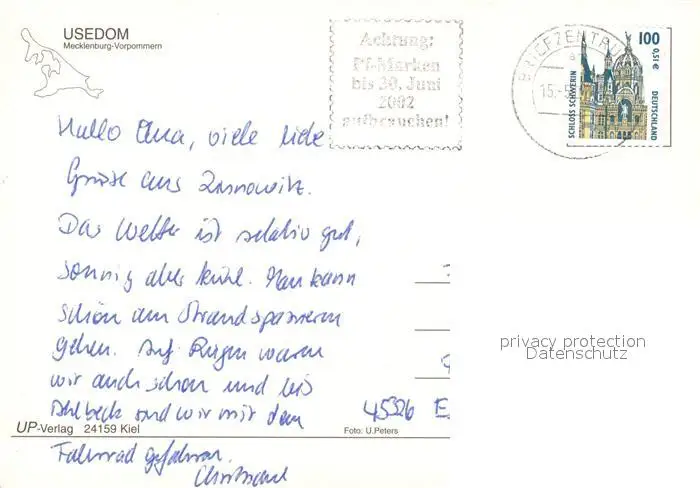 USEDOM
Mecklenburg-Vorpommern
Achtung:
Pf-Marken
bis 30. Juni
2002
aufbrauchen!
BRIEFZENTRUM
15.-5
100
0,51€
SCHLOSS SCHWERIN
DEUTSCHLAND
Hallo Oma, viele liebe
Grüße aus Zinnowitz.
Das Wetter ist relativ gut,
sonnig aber kühl. Man kann
schön am Strand spazieren
gehen. Auf Rügen waren
wir auch schon und bis
Ahlbeck sind wir mit dem
Fahrrad gefahren.
45326 E
UP-Verlag 24159 Kiel
Foto: U.Peters
privacy protection
Datenschutz